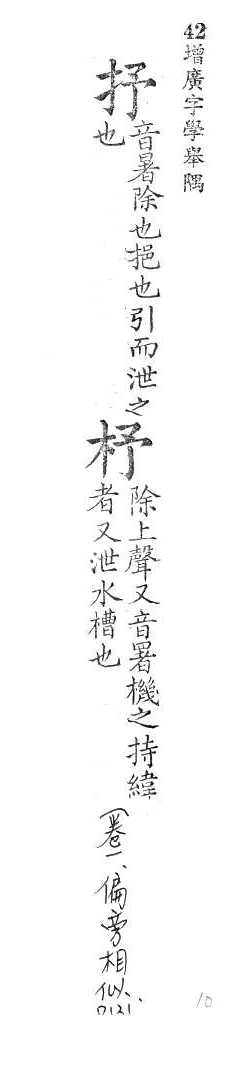 42增廣字學舉隅
抒
音暑除也挹也引而泄之
也
杼
除上聲又音署機之持緯
者又泄水槽也
(卷一、偏旁相似
0121.
10